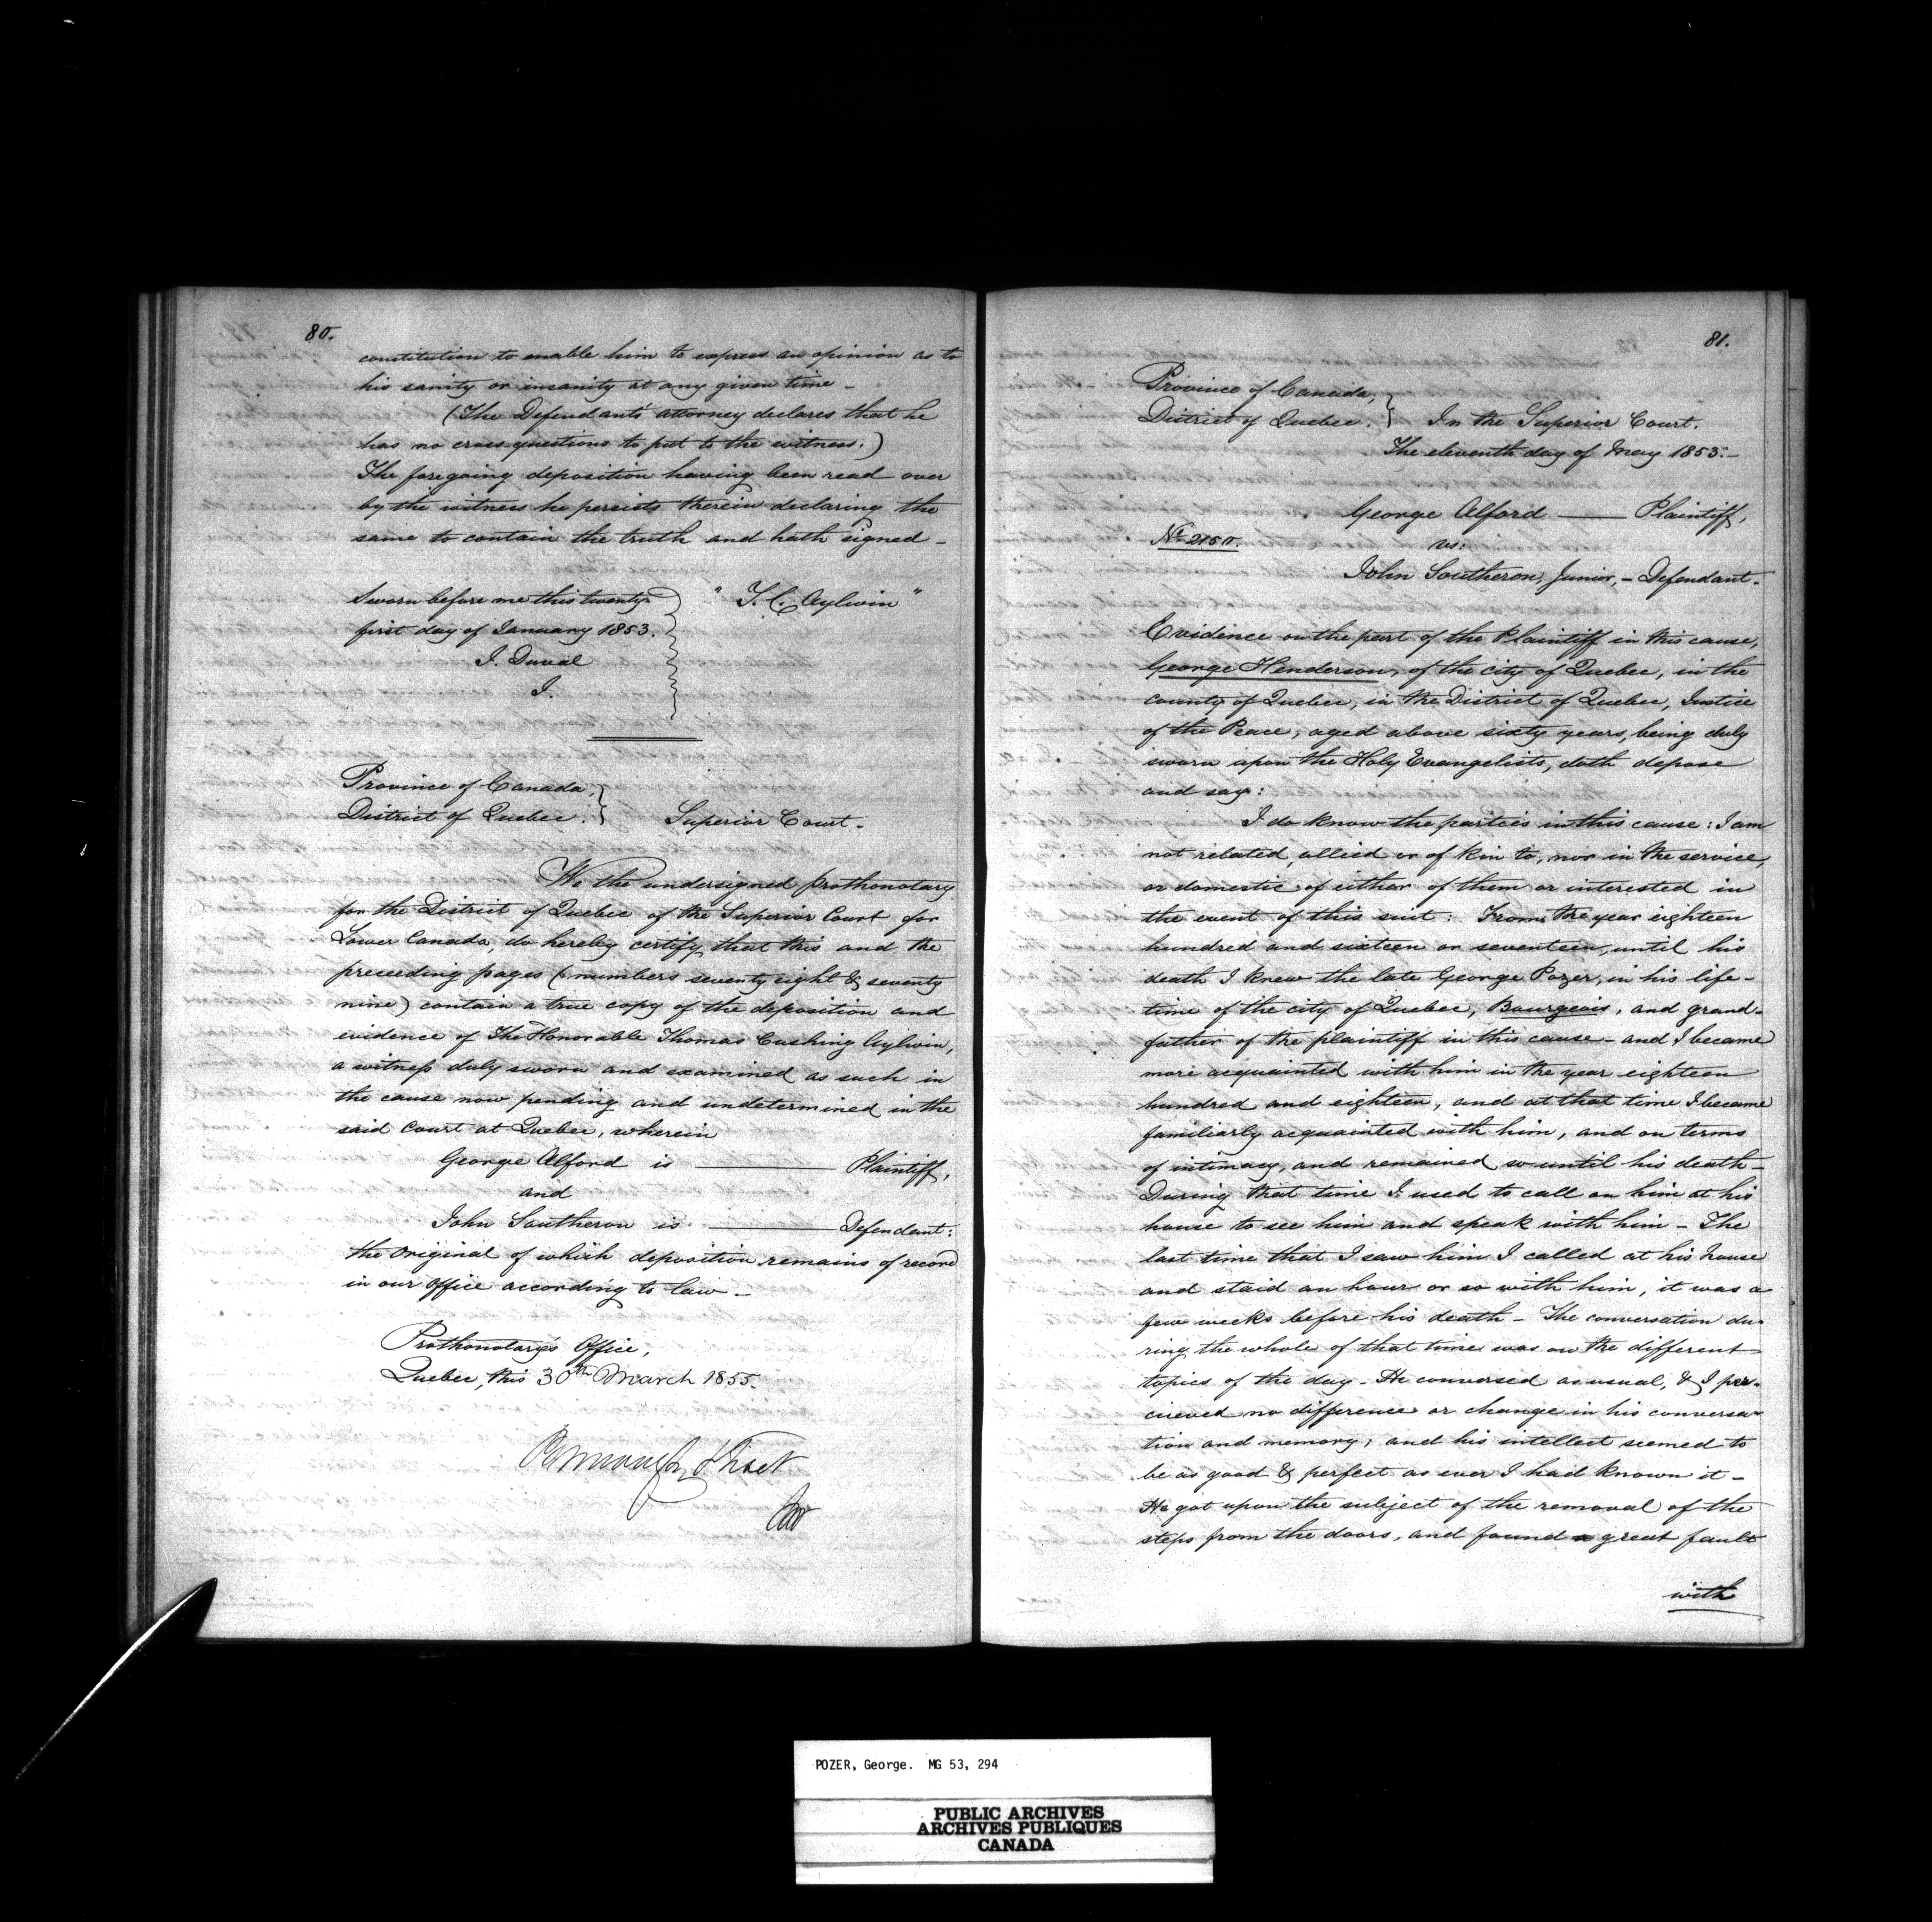 80.
constitution to enable him to express an opinion as to
his sanity or insanity at any given time -
(The Defendant's attorney declares that he
has no cross-questions to put to the witness.)
The foregoing deposition having been read over
by the witness he persists therein declaring the
same to contain the truth and hath signed -
Sworn before me this twenty " T. C. Aylwin "
first day of January 1853.
J. Duval
J.
Province of Canada,
District of Quebec. } Superior Court.
We the undersigned prothonotary
for the District of Quebec of the Superior Court for
Lower Canada, do hereby certify that this and the
preceeding pages (numbers seventy eight & seventy
nine) contain a true copy of the deposition and
evidence of The Honorable Thomas Cushing Aylwin,
a witness duly sworn and examined as such in
the cause now pending and undetermined in the
said Court at Quebec, wherein
George Alford is ——— Plaintiff,
and
John Southeron is ——— Defendant:
the original of which deposition remains of record
in our office according to law -
Prothonotary's Office,
Quebec, this 30th March 1855.
81.
Province of Canada,
District of Quebec. } In the Superior Court.
The eleventh day of May 1853.-
George Alford —— Plaintiff,
No. 2150.
vs:
John Southeron, Junior, - Defendant.
Evidence on the part of the Plaintiff in this cause,
George Henderson, of the city of Quebec, in the
county of Quebec, in the District of Quebec, Justice
of the Peace, aged above sixty years, being duly
sworn upon the Holy Evangelists, doth depose
and say:
I do know the parties in this cause: I am
not related, allied or of kin to, nor in the service,
or domestic of either of them or interested in
the event of this suit: From the year eighteen
hundred and sixteen or seventeen, until his
death I knew the late George Pozer, in his life-
time of the city of Quebec, Bourgeois, and grand-
father of the plaintiff in this cause - and I became
more acquainted with him in the year eighteen
hundred and eighteen, and at that time I became
familiarly acquainted with him, and on terms
of intimacy, and remained so until his death -
During that time I used to call on him at his
house to see him and speak with him - The
last time that I saw him I called at his house
and staid an hour or so with him, it was a
few weeks before his death - The conversation du-
ring the whole of that time was on the different
topics of the day - He conversed as usual, & I per-
cieved no difference or change in his conversa-
tion and memory; and his intellect seemed to
be as good & perfect as ever I had known it -
He got upon the subject of the removal of the
steps from the doors, and found a great fault
with
POZER, George. MG 53, 294
PUBLIC ARCHIVES
ARCHIVES PUBLIQUES
CANADA